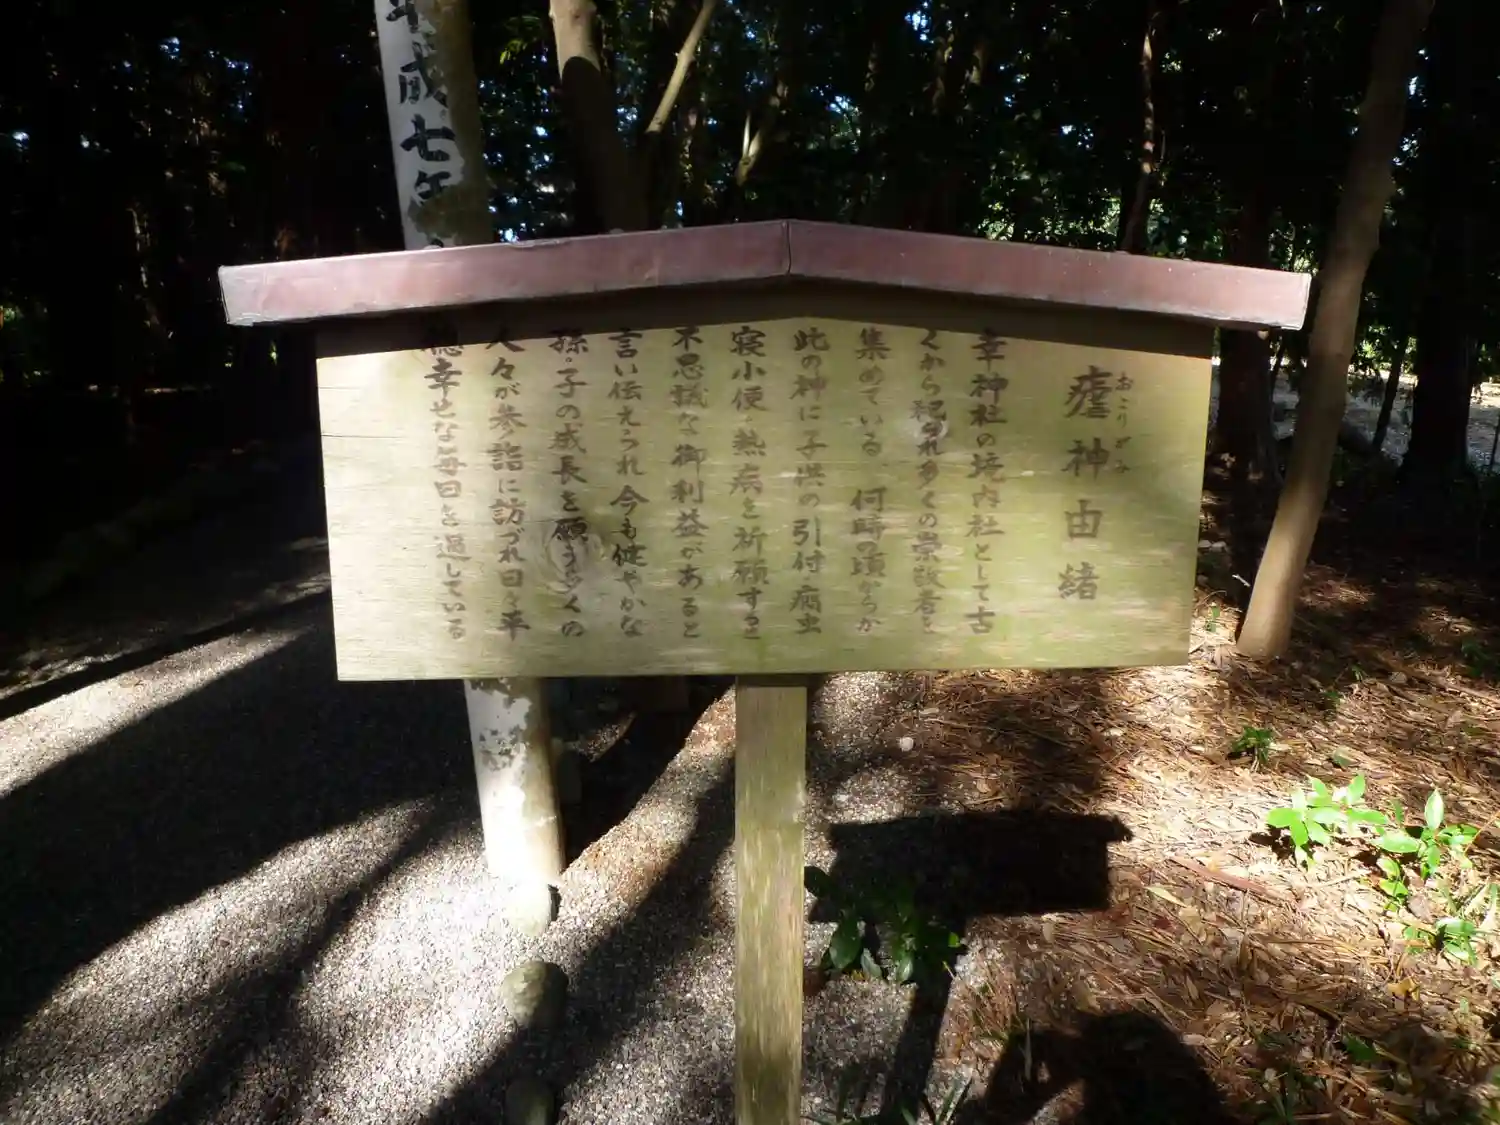 瘧神由緒
おこりがみ
幸神社の境内社として古
くから祀られ多くの崇敬者を
集めている 何時の頃からか
此の神に子供の引付病虫
寝小便・熱病を祈願すると
不思議な御利益があると
言い伝えられ今も健やかな
孫・子の成長を願う多くの
人々が参詣に訪づれ日々平
穏幸せな毎日を過している
平成七年